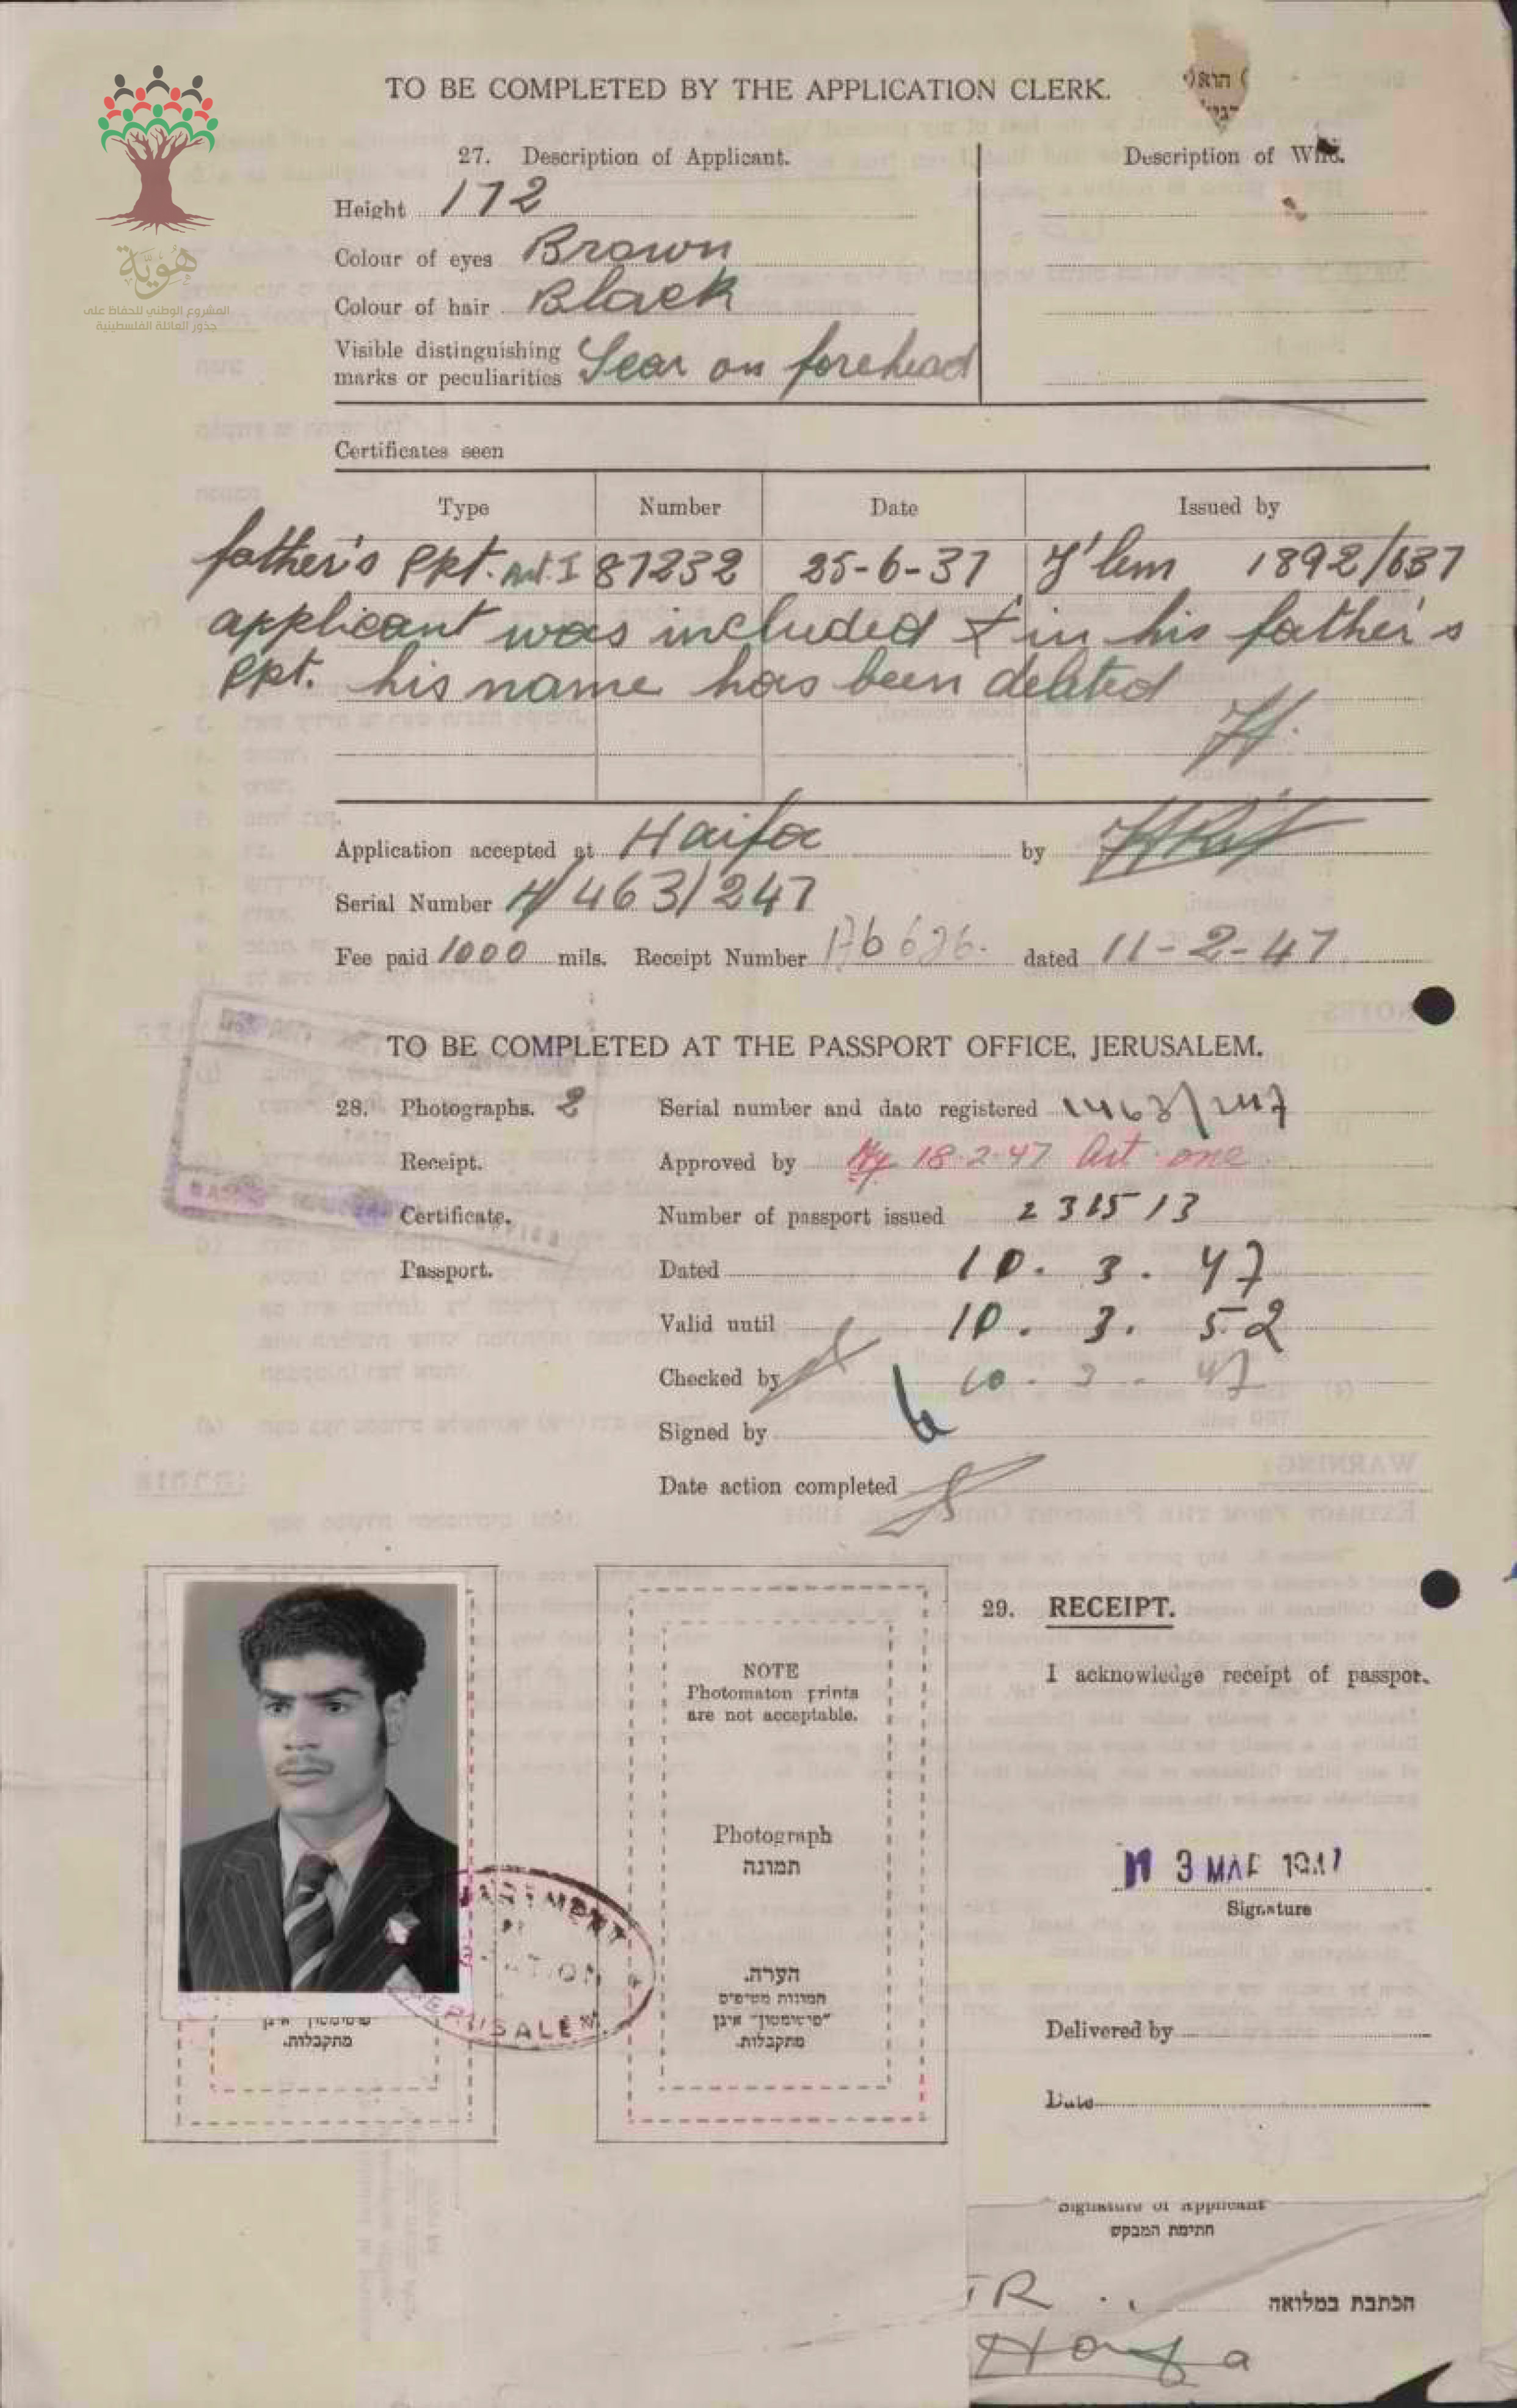 TO BE COMPLETED BY THE APPLICATION CLERK.
27. Description of Applicant.
Description of Wife.
Height 172
Colour of eyes Brown
Colour of hair Black
Visible distinguishing
marks or peculiarities Scar on forehead
هُوِيَّة
المشروع الوطني للحفاظ على
جذور العائلة الفلسطينية
Certificates seen
Type Number Date Issued by
father's Ppt. Art. I 87232 25-6-37 J'lem 1892/637
applicant was included & in his father's
Ppt. his name has been deleted
Application accepted at Haifa by
Serial Number H/463/247
Fee paid 1000 mils. Receipt Number dated 11-2-47
TO BE COMPLETED AT THE PASSPORT OFFICE, JERUSALEM.
28. Photographs. 2 Serial number and date registered
Receipt. Approved by 18.2.47 Art. one
Certificate. Number of passport issued 231513
Passport. Dated 10. 3. 47
Valid until 10. 3. 52
Checked by 10. 3. 47
Signed by
Date action completed
29. RECEIPT.
I acknowledge receipt of passport.
NOTE
Photomaton prints
are not acceptable.
Photograph
תמונה
הערה.
תמונות מטיפוס
"פוטומטון" אינן
מתקבלות.
"פוטומטון" אינן
מתקבלות.
JERUSALEM
3 MAR 1947
Signature
Delivered by
Date
Signature of Applicant
חתימת המבקש
הכתבת במלואה
Haifa